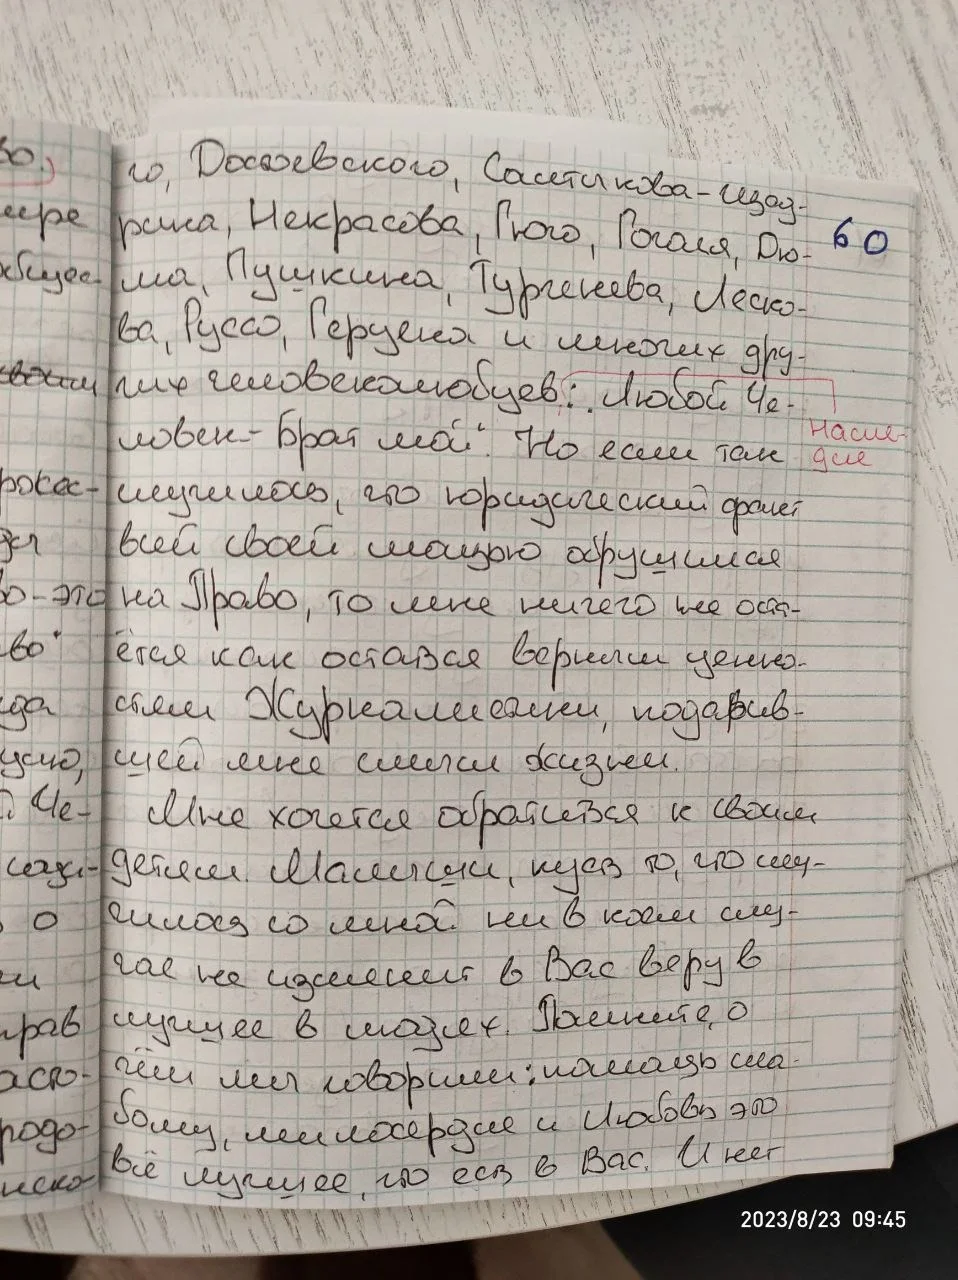 го, Достоевского, Салтыкова-Щед-
рина, Некрасова, Гюго, Гоголя, Дю-
60
ма, Пушкина, Тургенева, Леско-
ва, Руссо, Герцена и многих дру-
гих человеколюбцев: „Любой Че-
ловек - брат мой“. Но если так
Насле-
дие
случилось, что юридический факт
всей своей мощью обрушился
на Право, то мне ничего не оста-
ётся как остаться верным ценно-
стям Журналистики, подарив-
шей мне смысл жизни.
Мне хочется обратиться к своим
детям. Малыши, пусть то, что слу-
чилось со мной ни в коем слу-
чае не изменит в Вас веру в
лучшее в людях. Помните, о
чём мы говорили: помощь сла-
бому, милосердие и Любовь это
всё лучшее, что есть в Вас. И нет
во.
мере
своим
го-это
во“
да
Че-
о
прав
родо-
2023/8/23 09:45